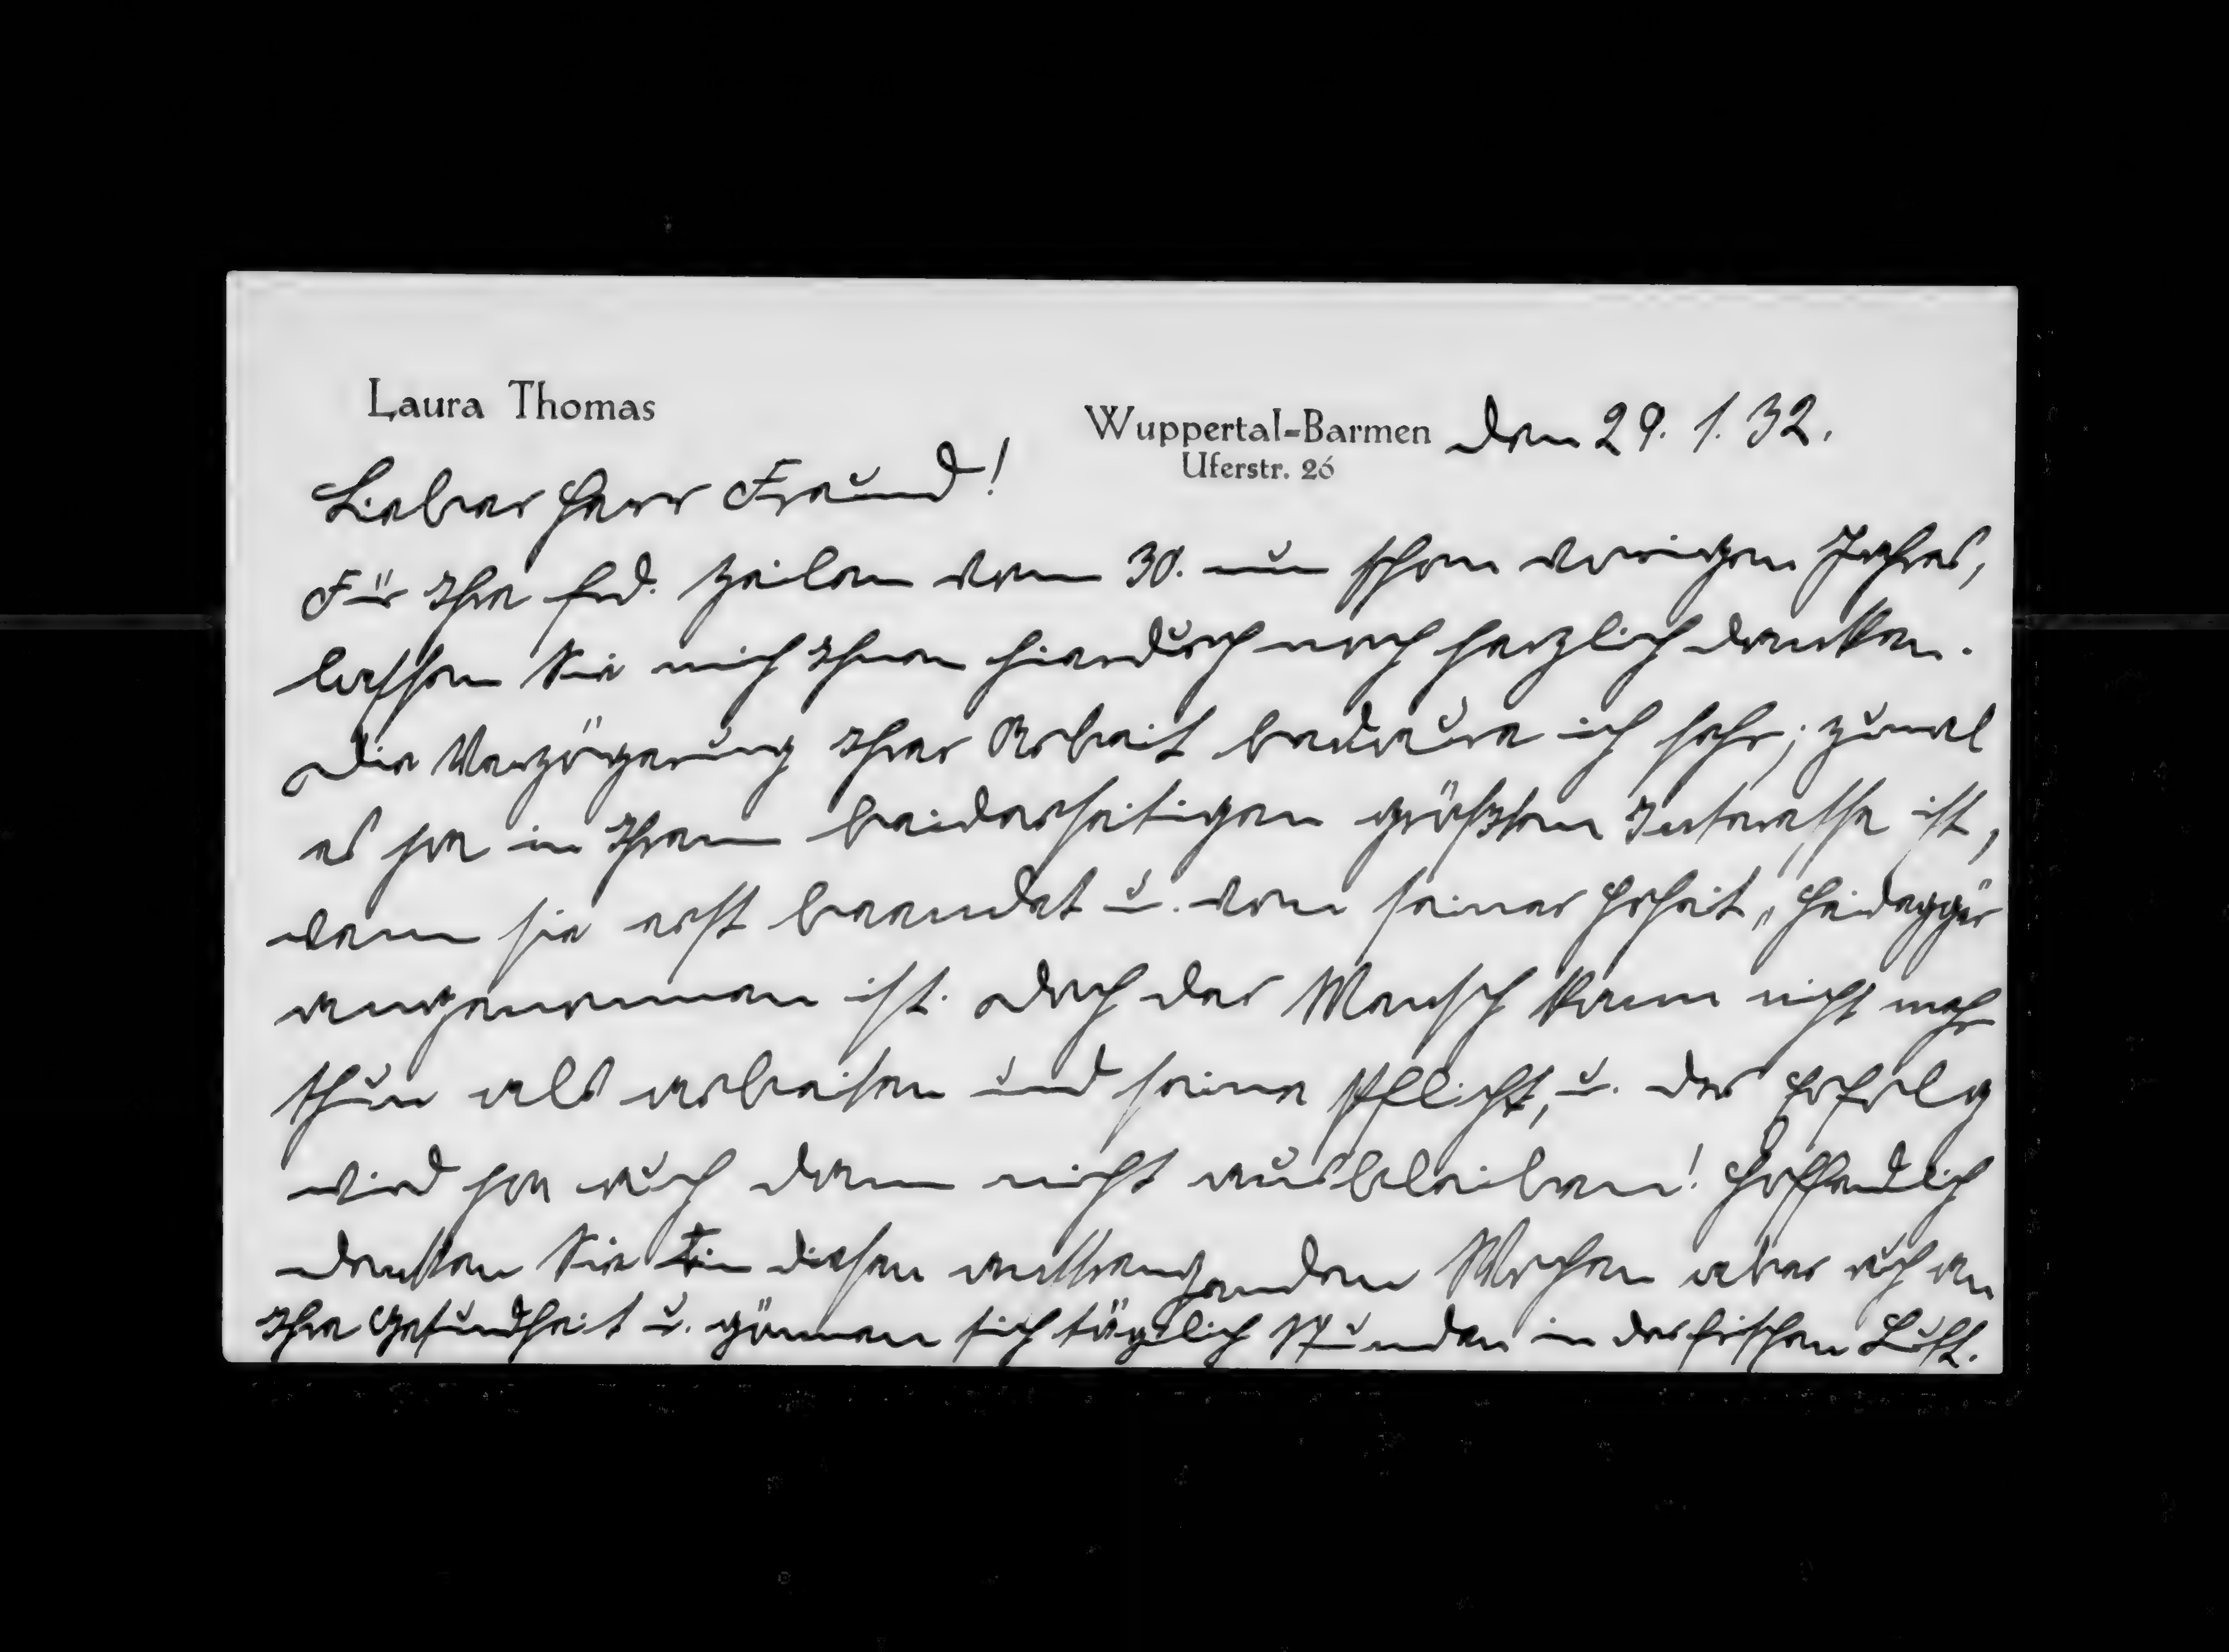 Laura Thomas
Wuppertal=Barmen den 29. 1. 32.
Uferstr. 26
Lieber Herr Freund!
Für Ihre frd. Zeilen vom 30. nun schon vorigen Jahres,
lassen Sie mich Ihnen hierdurch noch herzlich danken.
Die Verzögerung Ihrer Arbeit bedaure ich sehr; zumal
es ja in Ihrem beiderseitigen größten Interesse ist,
wenn sie erst beendet u. von seiner Hoheit „Heidegger
angenommen ist. Doch der Mensch kann nicht mehr
thun als arbeiten und seine Pflicht, u. der Erfolg
wird ja auch dann nicht ausbleiben! Hoffendlich
denken Sie in diesen anstrengenden Wochen aber auch an
Ihre Gesundheit u. gönnen sich täglich Stunden in der frischen Luft.